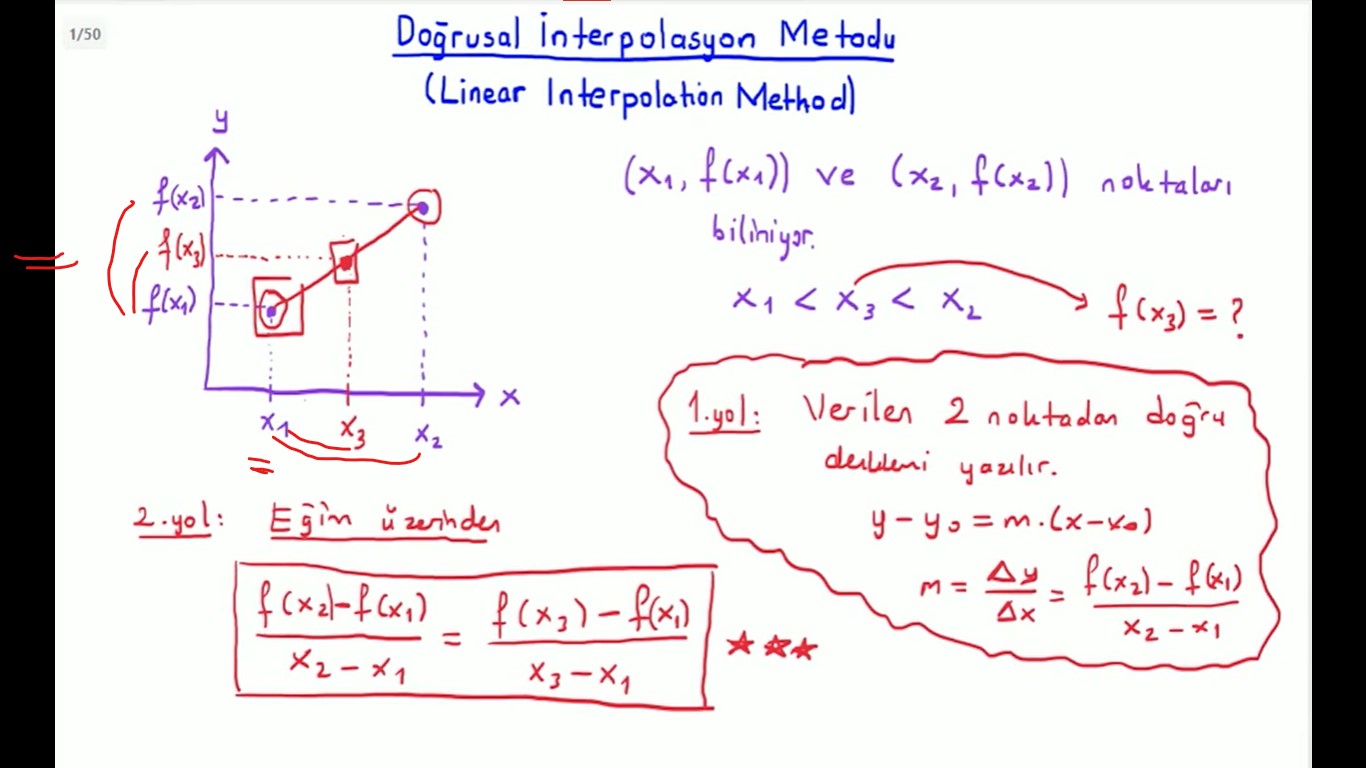 1/50
Doğrusal İnterpolasyon Metodu
(Linear Interpolation Method)
y
f(x2)
f(x3)
f(x1)
x
x1
x3
x2
(x1, f(x1)) ve (x2, f(x2)) noktaları
biliniyor.
x1 < x3 < x2
f(x3) = ?
1.yol: Verilen 2 noktadan doğru
denklemi yazılır.
y - y0 = m.(x - x0)
m = Δy/Δx = (f(x2) - f(x1))/(x2 - x1)
2.yol: Eğim üzerinden
(f(x2) - f(x1))/(x2 - x1) = (f(x3) - f(x1))/(x3 - x1)